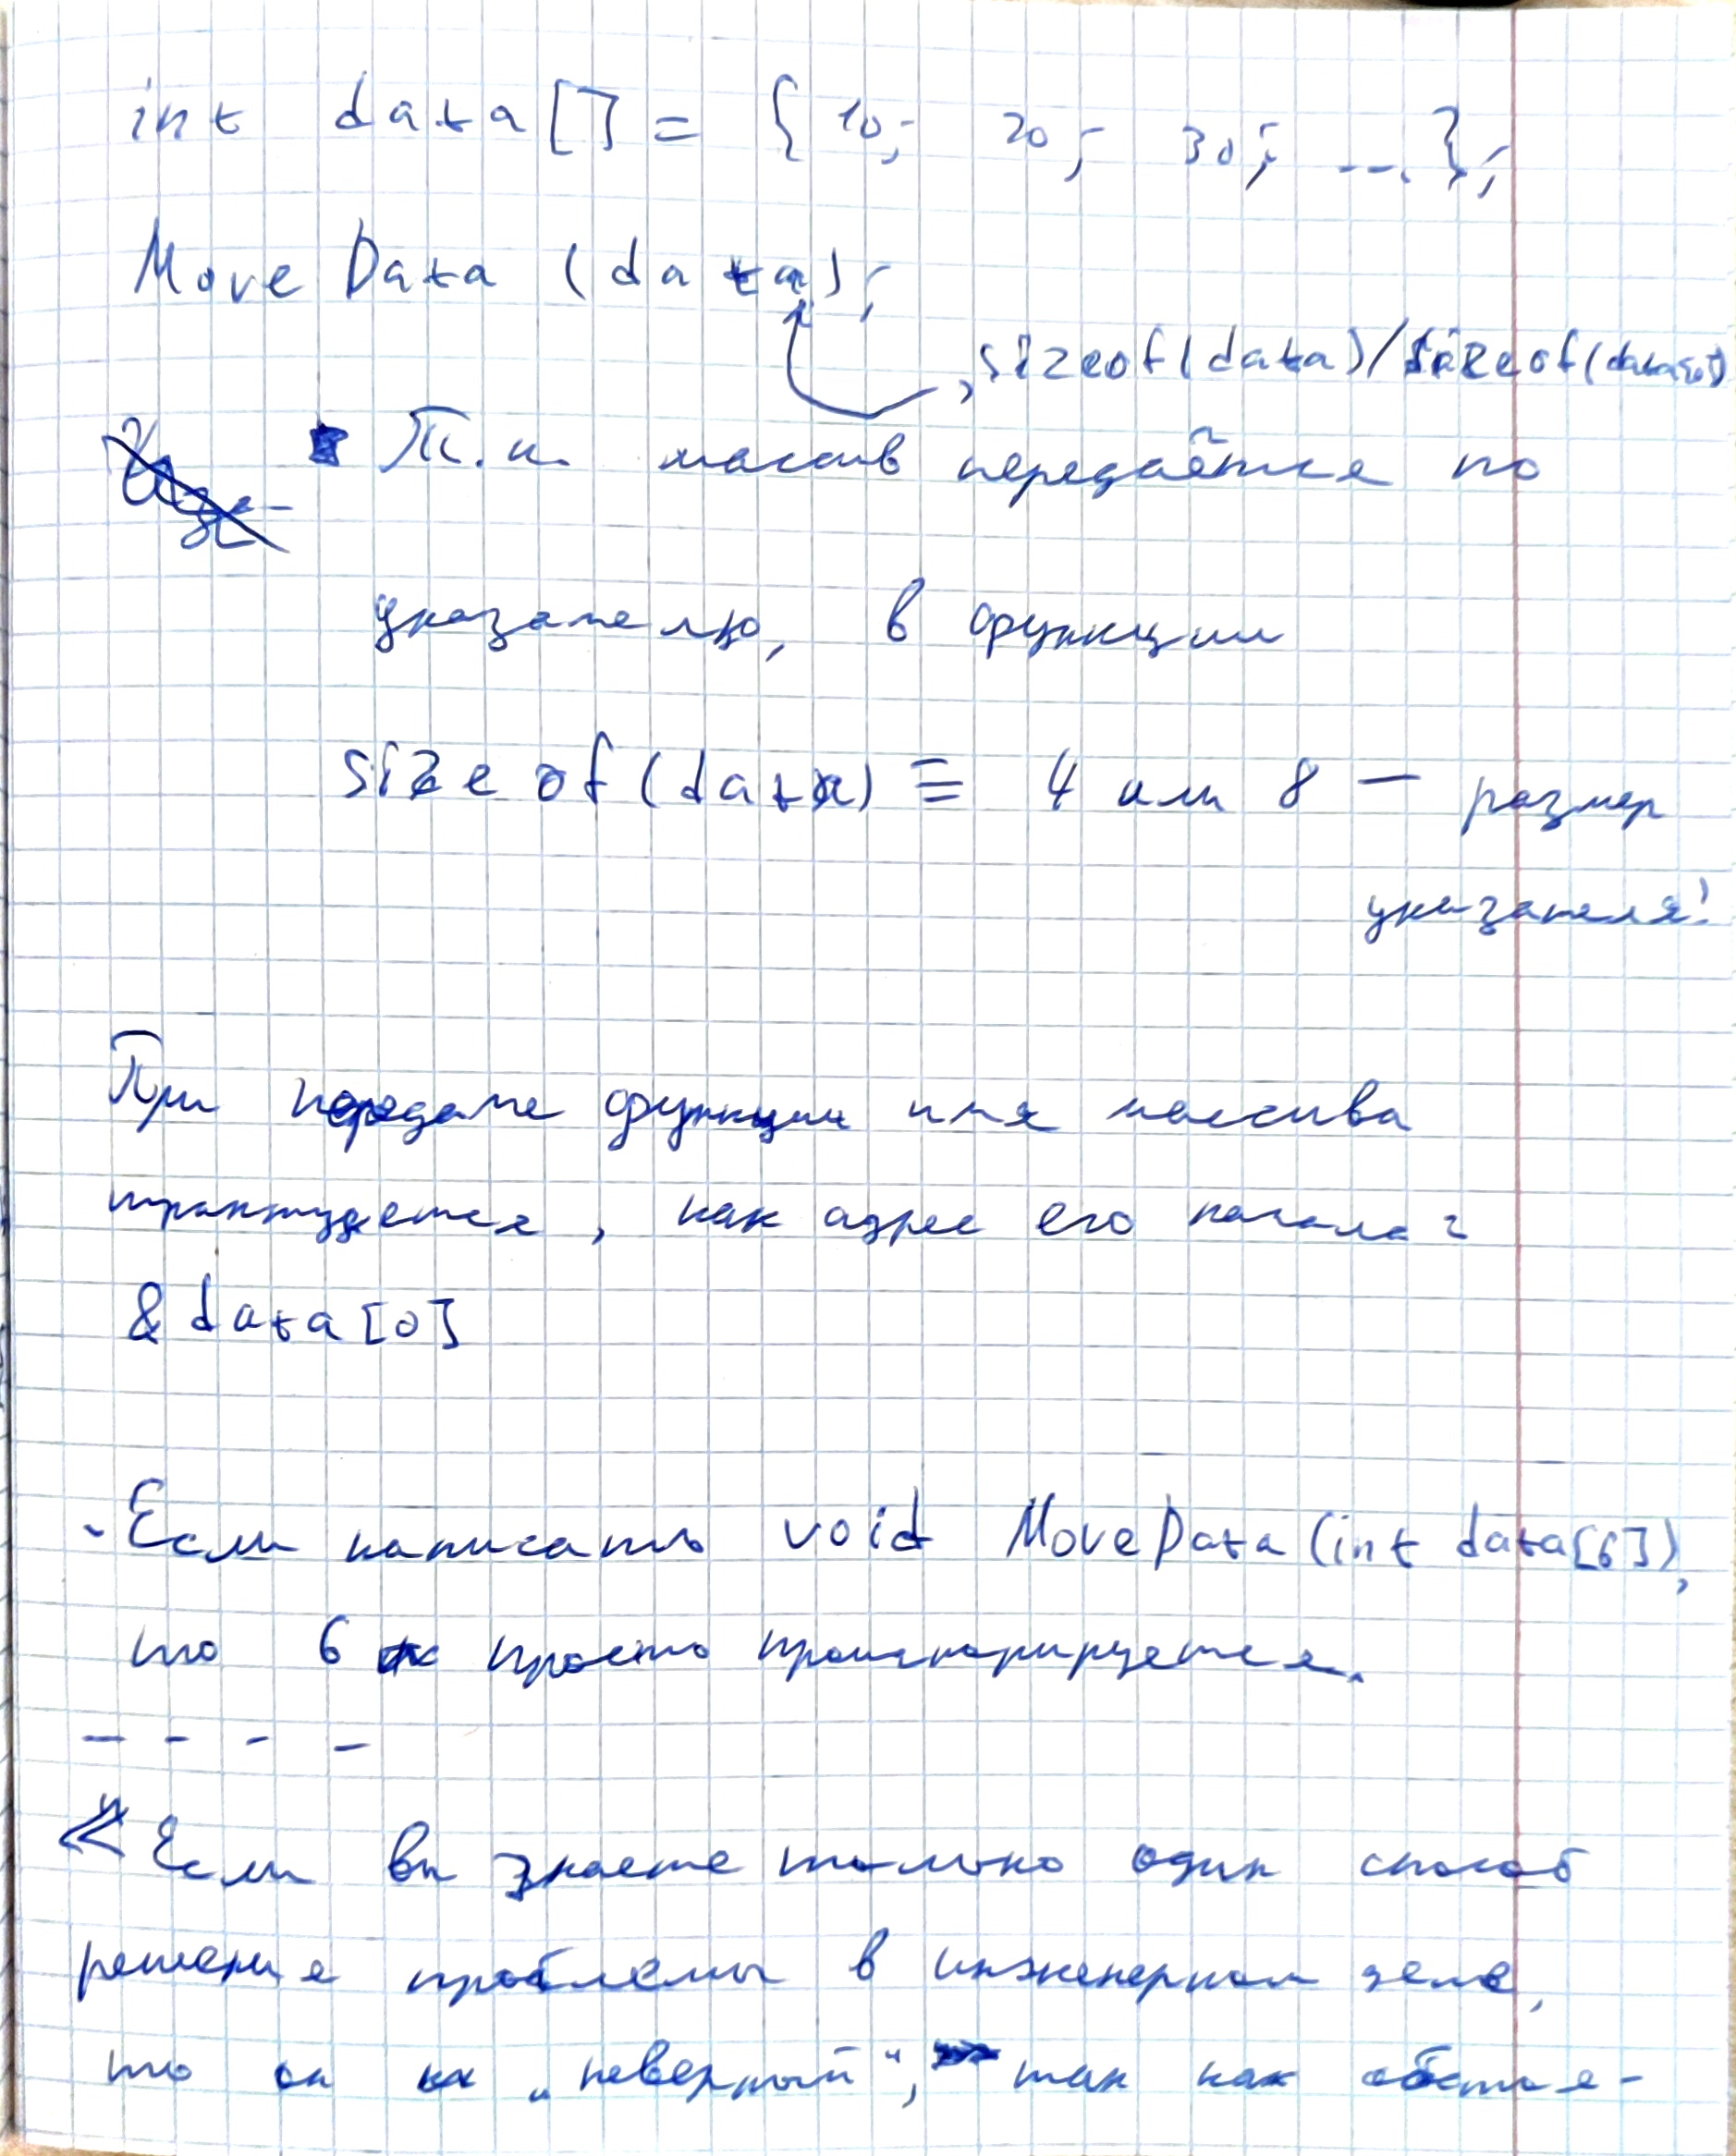 int data[] = { 10; 20; 30; ... };
Move Data (data);
, sizeof(data)/sizeof(data[0])
Т.к. массив передаётся по
указателю, в функции
sizeof(data) ≡ 4 или 8 — размер
указателя!
При передаче функции имя массива
трактуется, как адрес его начала:
&data[0]
- Если написать void MoveData(int data[6]),
то 6 просто проигнорируется.
- - - -
«Если вы знаете только один способ
решения проблемы в инженерном деле,
то он „неверный“, так как обстоя-